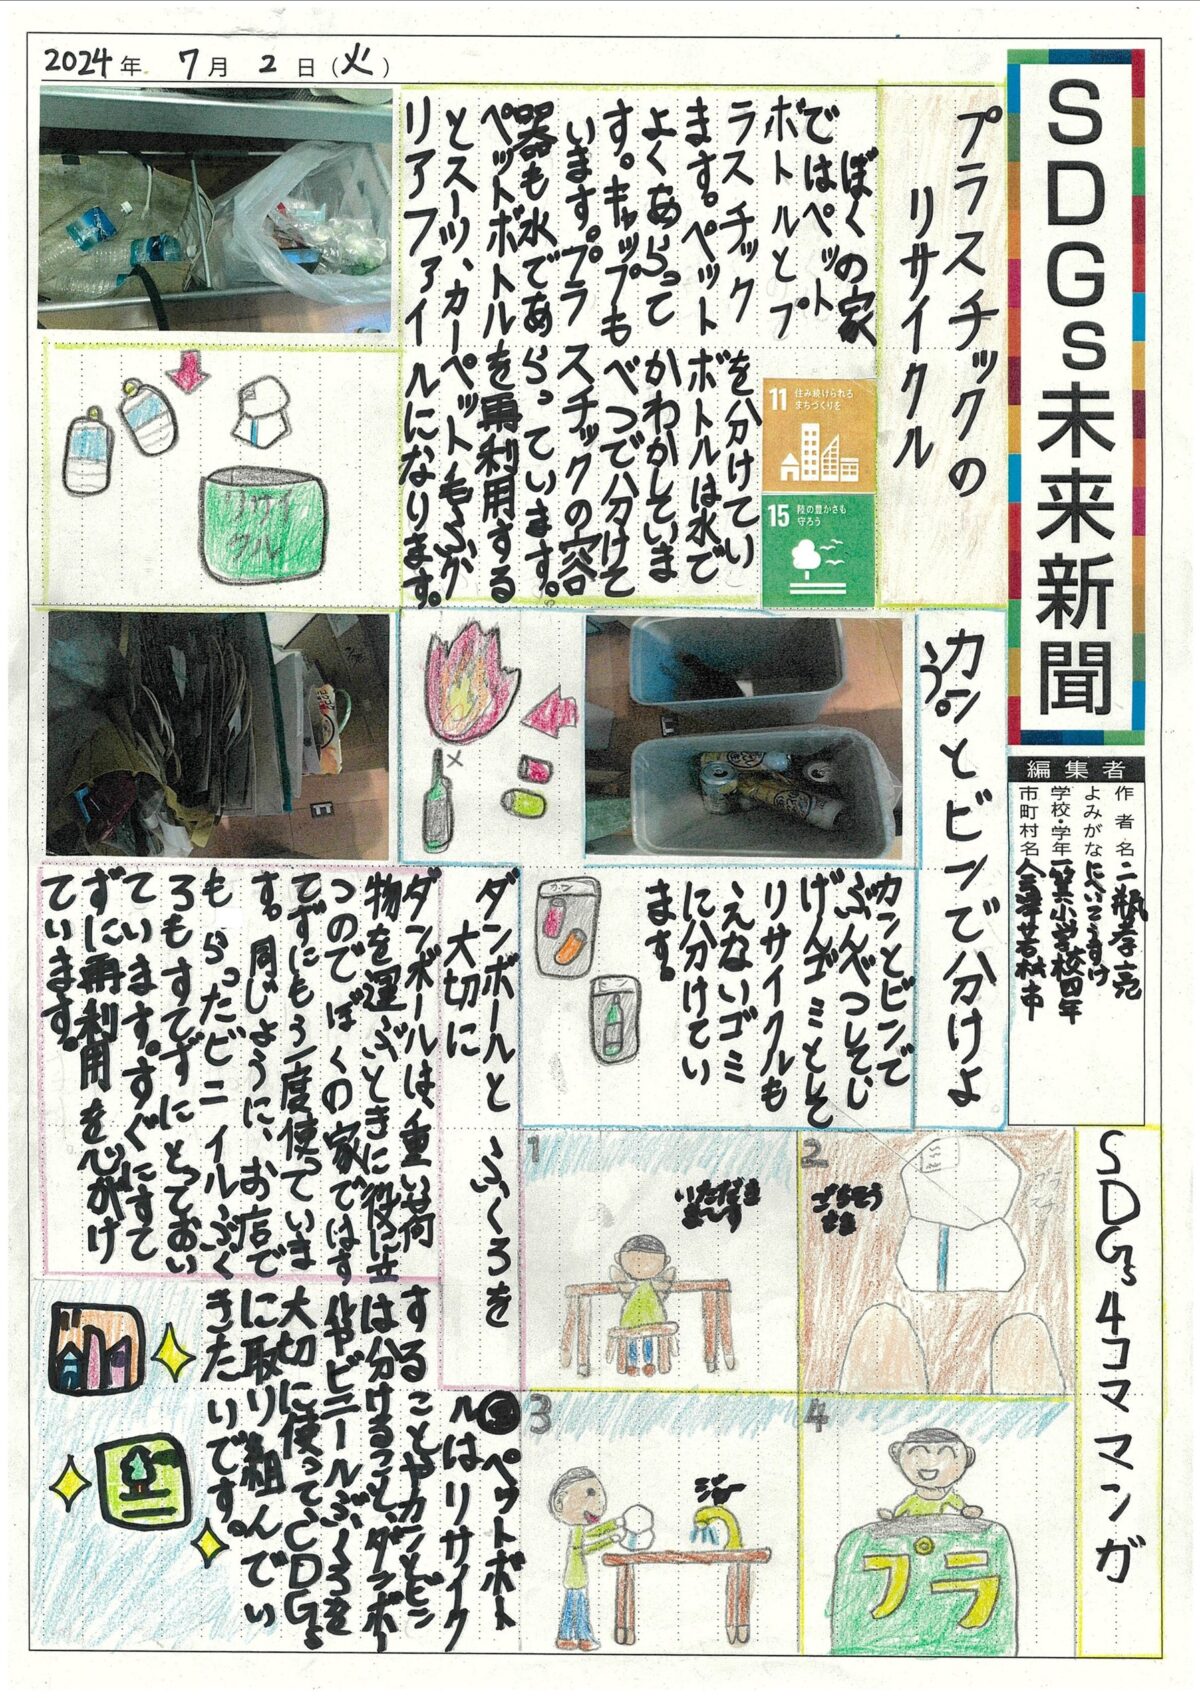 2024年 7月 2日(火)
SDGs未来新聞
編集者
作者名 二瓶孝亮
よみがな にへいこうすけ
学校・学年 一箕小学校四年
市町村名 会津若松市
プラスチックの
リサイクル
ぼくの家
ではペット
ボトルとプ
ラスチックを分けてい
ます。ペットボトルは水で
よくあらってかわかしていま
す。キャップもべつで分けて
います。プラスチックの容
器も水であらっています。
ペットボトルを再利用する
とスーツ、カーペット、毛ふ、ク
リアファイルになります。
11 住み続けられる
まちづくりを
15 陸の豊かさも
守ろう
リサイ
クル
カンとビンで分けよ
う。
カンとビンで
ぶんべつしてし
げんゴミとして
リサイクルも
えないゴミ
に分けてい
ます。
カン
ダンボールとふくろを
大切に
ダンボールは重い荷
物を運ぶときに役に立
つのでぼくの家ではす
てずにもう一度使っていま
す。同じように、お店で
もらったビニイルぶく
ろもすてずにとっておい
ています。すぐにすて
ずに再利用を心がけ
ています。
SDGs4コママンガ
1
いただき
まーす
2
ごちそう
さま
プラ
3
ジャー
4
プラ
ペットボト
ルはリサイク
することやカンとビン
は分けること、ダンボー
ルやビニールぶくろを
大切に使ってSDGs
に取り組んでい
きたいです。